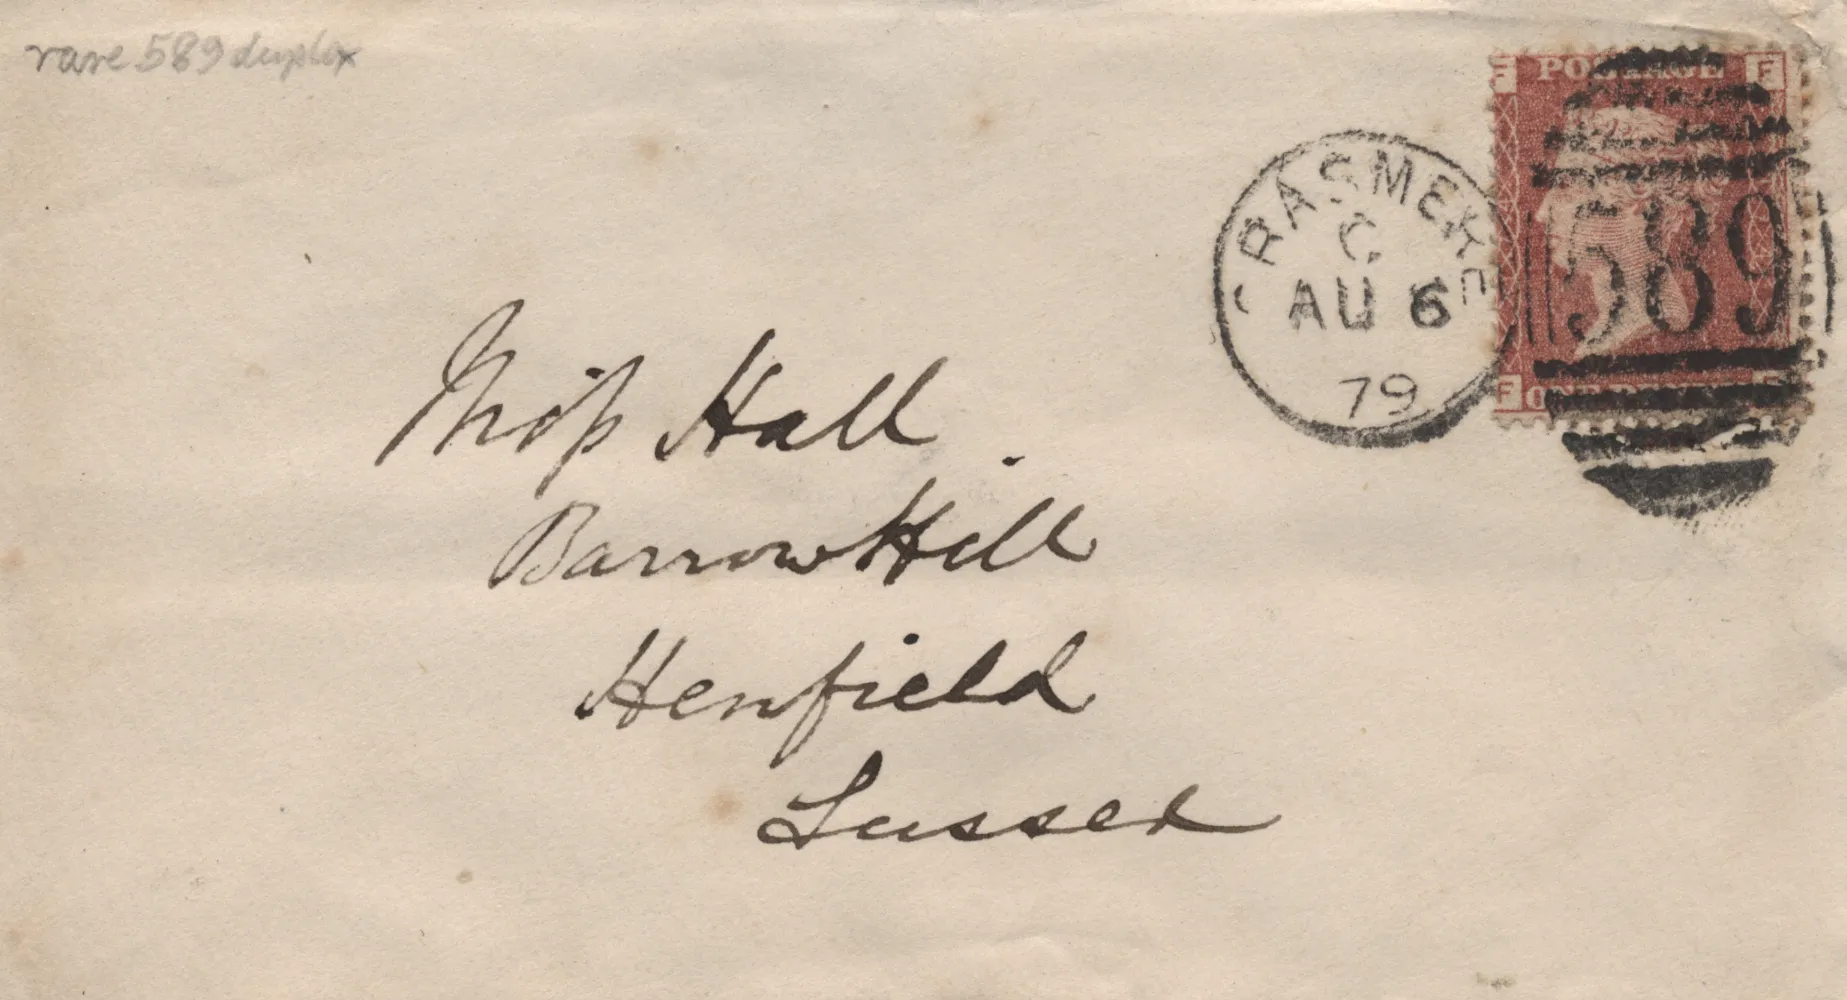 rare 589 duplex
POSTAGE
F
GRASMERE
C
AU 6
79
589
F
ONE PENNY
Miss Hall
Barrow Hill
Henfield
Sussex